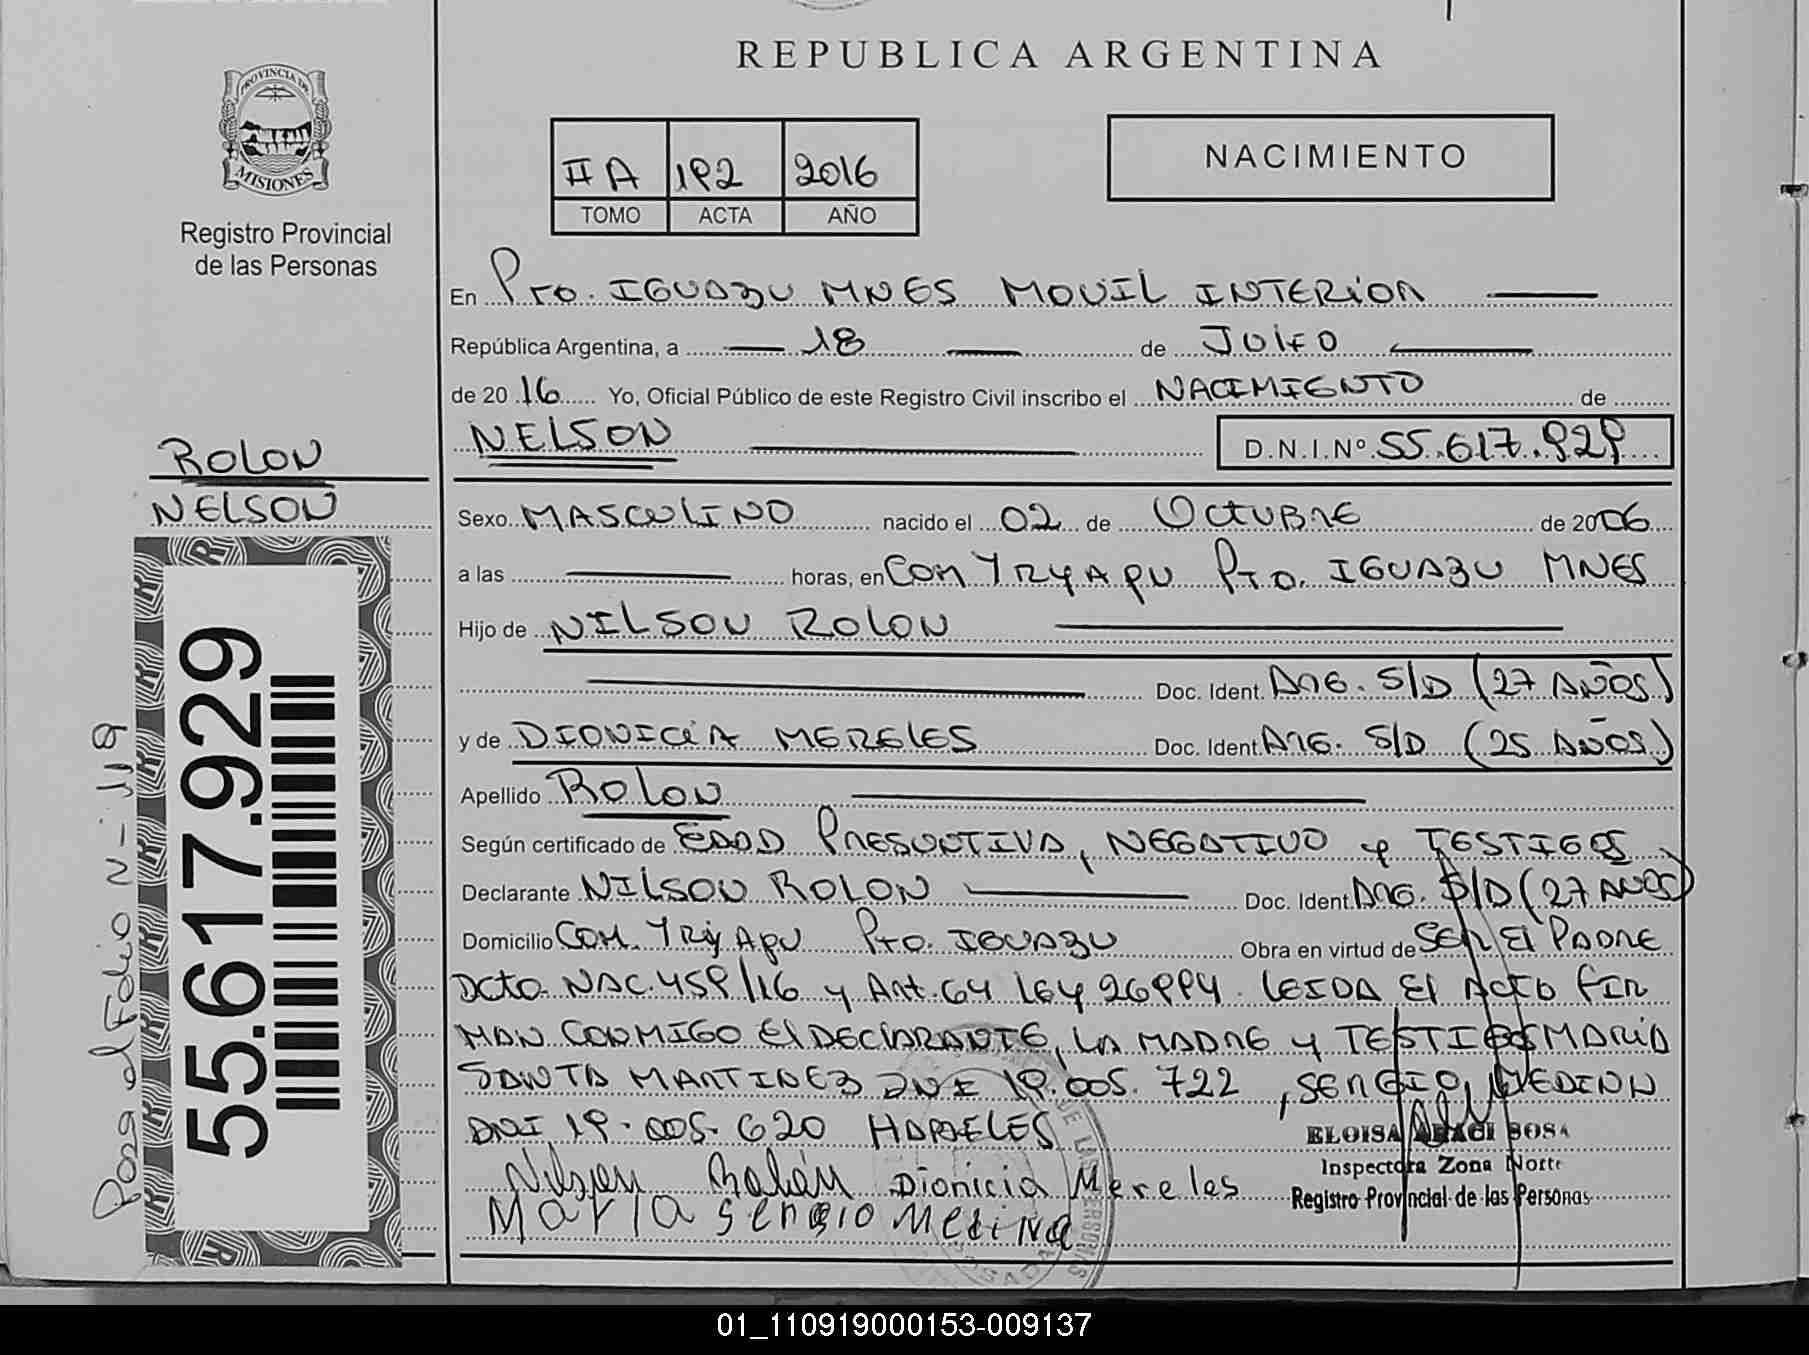 REPUBLICA ARGENTINA
PROVINCIA DE
MISIONES
Registro Provincial
de las Personas
II A 192 2016
TOMO ACTA AÑO
NACIMIENTO
En Pto. IGUAZU MNES MOVIL INTERIOR
República Argentina, a 18 de JULIO
de 20 16 Yo, Oficial Público de este Registro Civil inscribo el NACIMIENTO de
NELSON D.N.I.Nº 55.617.929
ROLON
NELSON
Sexo MASCULINO nacido el 02 de OCTUBRE de 2006
a las horas, en COM YRYAPU Pto. IGUAZU MNES
Hijo de NILSON ROLON
Doc. Ident. ARG. S/D (27 AÑOS)
y de DIONICIA MERELES Doc. Ident. ARG. S/D (25 AÑOS)
Apellido ROLON
Según certificado de EDAD PRESUNTIVA, NEGATIVO y TESTIGOS
Declarante NILSON ROLON Doc. Ident. ARG. S/D (27 AÑOS)
Domicilio COM. YRYAPU Pto. IGUAZU Obra en virtud de SER El PADRE
Dcto NAC. 459/16 y Art. 64 LEY 26994. LEIDA El ACTO FIR
MAN CONMIGO El DECLARANTE, LA MADRE y TESTIGOS MARIA
SANTA MARTINEZ DNI 19.005.722, SERGIO MEDINA
DNI 19.005.620
Nilson Rolón Dionicia Mereles
Maria Sergio Medina
ELOISA BOSA
Inspectora Zona Norte
Registro Provincial de las Personas
55.617.929
Pasa al Folio N- 119
01_110919000153-009137